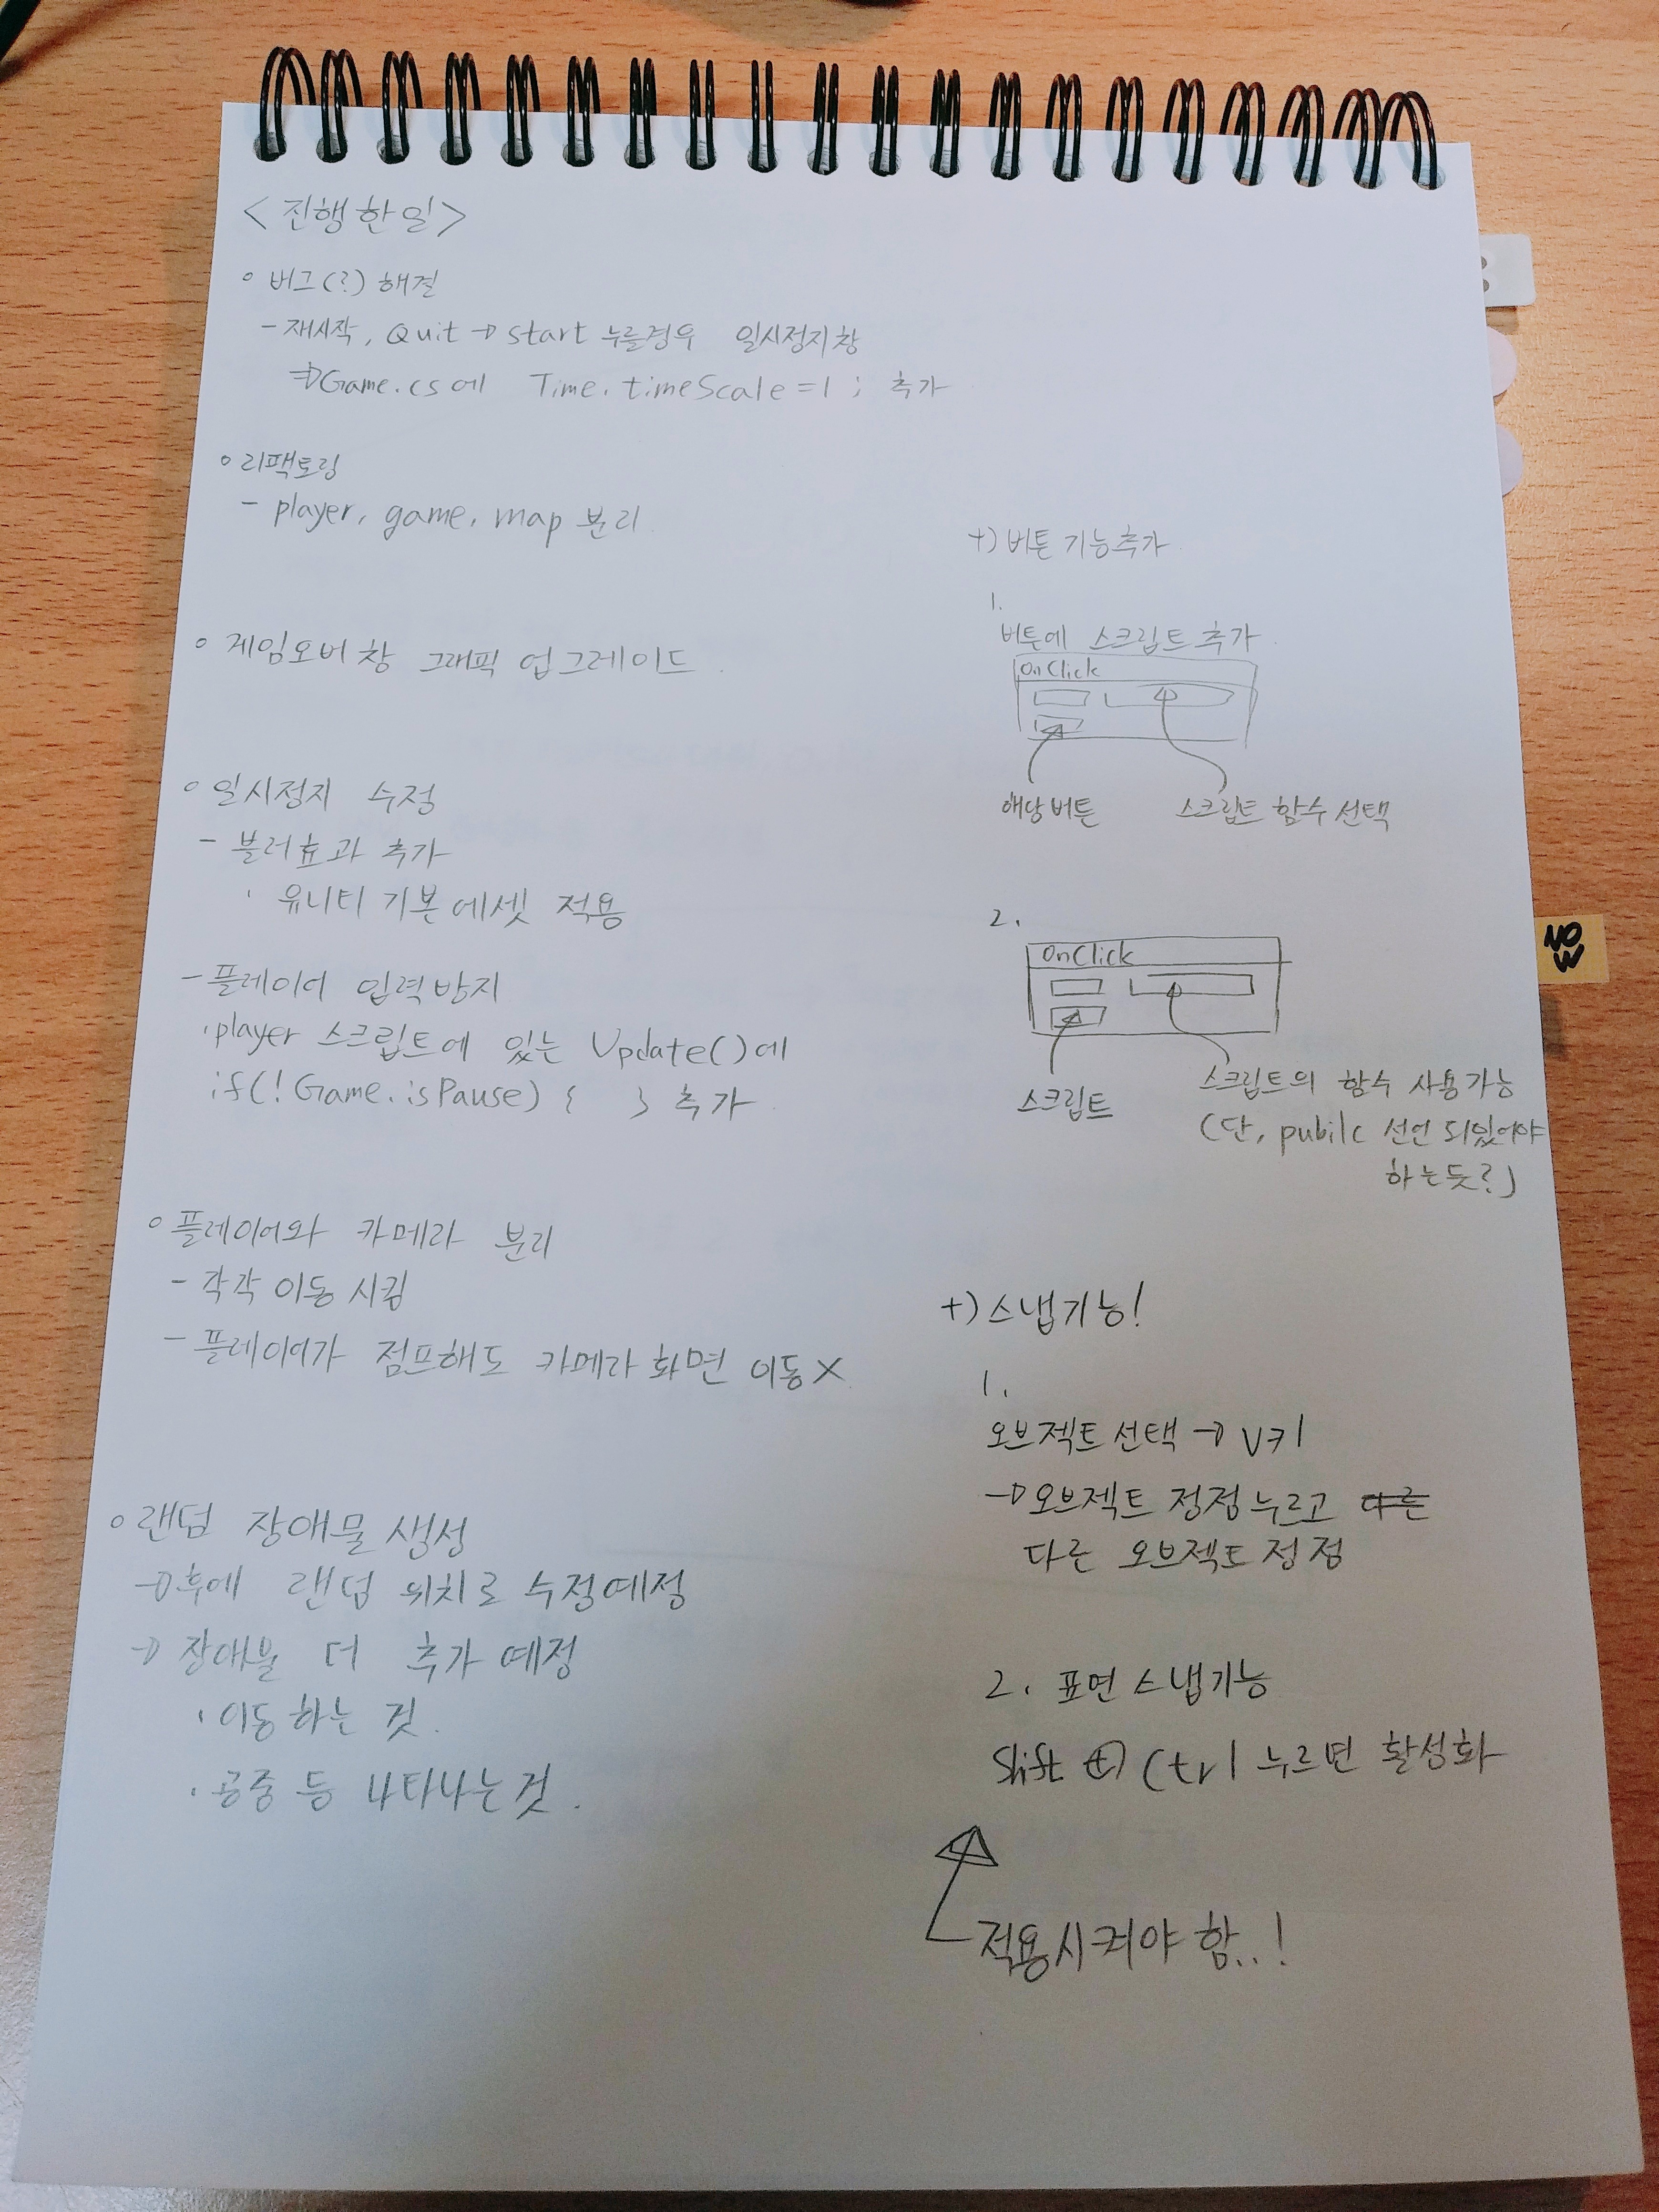 <진행한일>
◦ 버그(?) 해결
- 재시작, Quit → start 누를경우 일시정지창
⇒ Game.cs에 Time.timeScale=1; 추가
◦ 리팩토링
- player, game, map 분리
◦ 게임오버창 그래픽 업그레이드
◦ 일시정지 수정
- 블러효과 추가
· 유니티 기본에셋 적용
- 플레이어 입력방지
· player 스크립트에 있는 Update()에
if(!Game.isPause) { } 추가
◦ 플레이어와 카메라 분리
- 각각 이동시킴
- 플레이어가 점프해도 카메라화면 이동 X
◦ 랜덤 장애물생성
→ 후에 랜덤 위치로 수정예정
→ 장애물 더 추가예정
· 이동하는 것.
· 공중 등 나타나는것.
+) 버튼 기능추가
1.
버튼에 스크립트 추가
OnClick
해당버튼 스크립트 함수선택
2.
OnClick
스크립트
스크립트의 함수 사용가능
(단, pubilc 선언 되있어야
하는듯?)
+) 스냅기능!
1.
오브젝트선택 → V키
→ 오브젝트 정점누르고 다른
다른 오브젝트정점
2. 표면스냅기능
Shift + Ctrl 누르면 활성화
적용시켜야함..!
NO
W